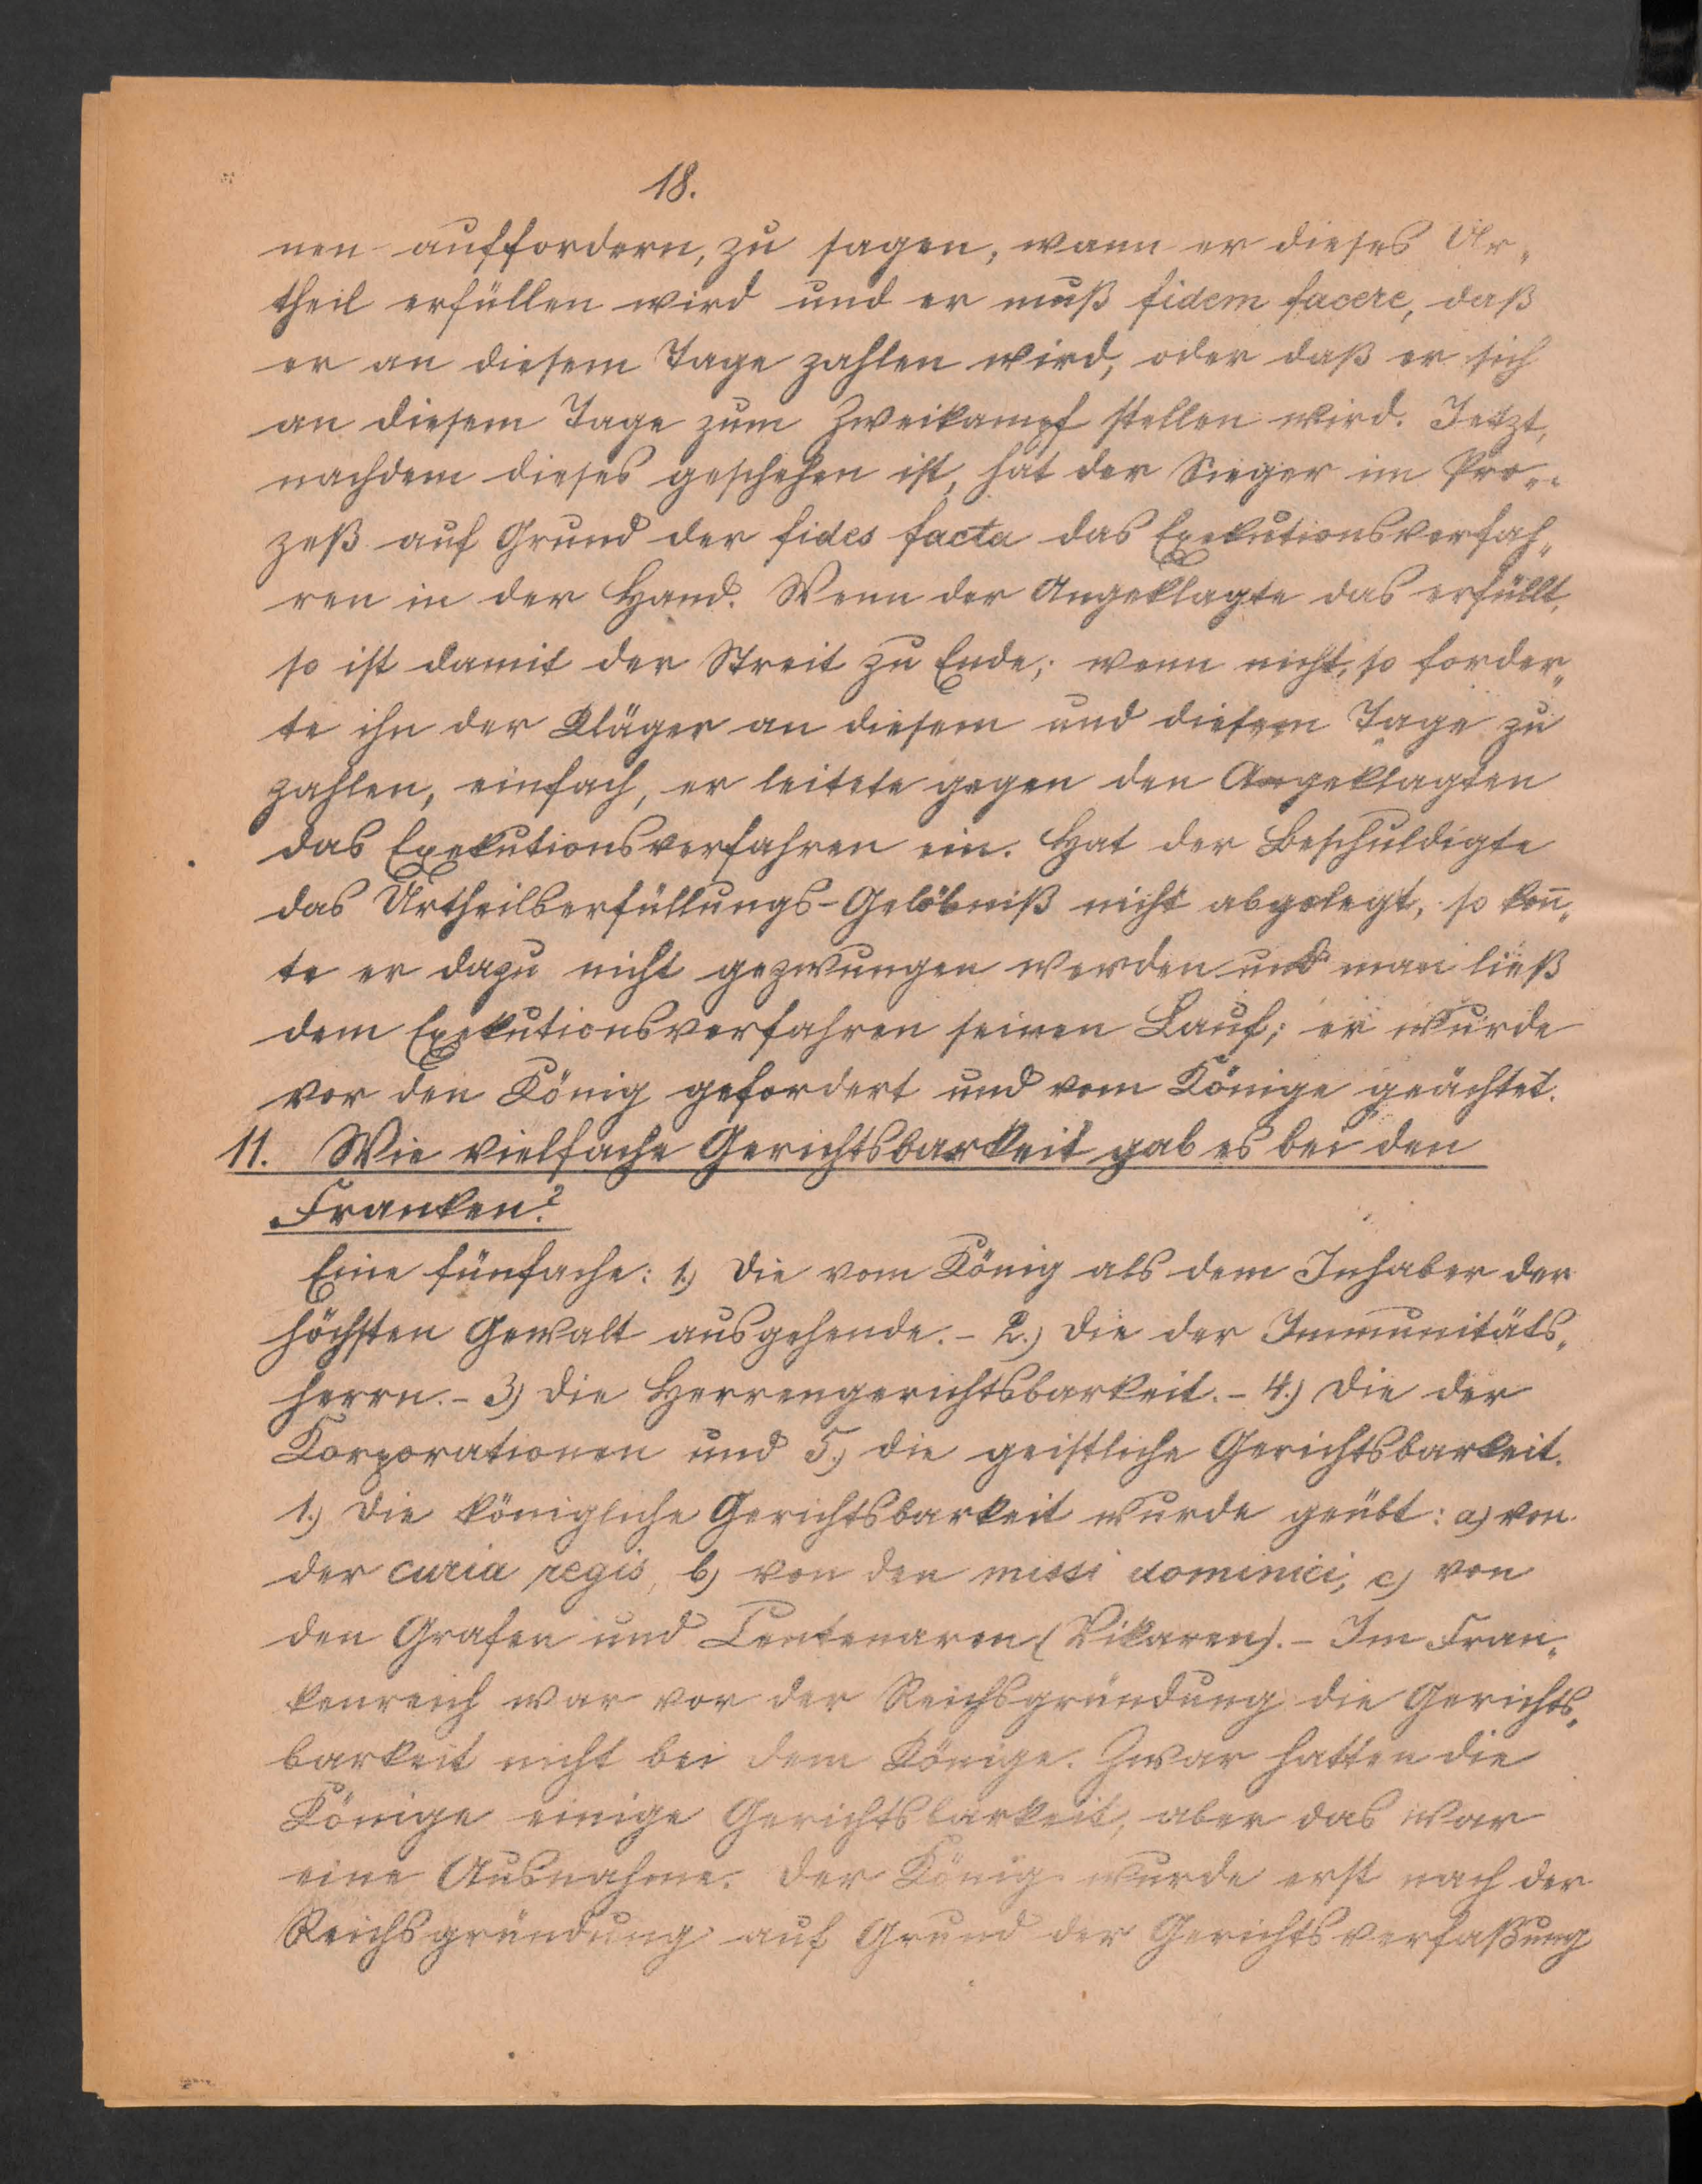 18.
nen auffordern, zu sagen, wann er dieses Ur„
theil erfüllen wird und er muß fidem facere, daß
er an diesem Tage zahlen wird, oder daß er sich
an diesem Tage zum Zweikampf stellen wird. Jetzt,
nachdem dieses geschehen ist, hat der Sieger im Pro„
zeß auf Grund der fides facta das Exekutionsverfah„
ren in der Hand. Wenn der Angeklagte das erfüllt,
so ist damit der Streit zu Ende; wenn nicht, so forder„
te ihn der Kläger an diesem und diesem Tage zu
zahlen, einfach, er leitete gegen den Angeklagten
das Exekutionsverfahren ein. Hat der Beschuldigte
das Urtheilserfüllungs-Gelöbniß nicht abgelegt, so kon̄„
te er dazu nicht gezwungen werden und man ließ
dem Exekutionsverfahren seinen Lauf; er wurde
vor den König gefordert und vom Könige geächtet.
11. Wie vielfache Gerichtsbarkeit gab es bei den
Franken?
Eine fünfache: 1.) Die vom König als dem Inhaber der
höchsten Gewalt ausgehende. - 2.) Die der Immunitäts„
herrn. - 3.) Die Herrengerichtsbarkeit. - 4.) Die der
Korporationen und 5.) die geistliche Gerichtsbarkeit.
1.) Die königliche Gerichtsbarkeit wurde geübt: a) von
der curia regis, b) von den missi dominici, c) von
den Grafen und Centenaren (Vikaren). - Im Fran„
kenreich war vor der Reichsgründung die Gerichts„
barkeit nicht bei dem Könige. Zwar hatten die
Könige einige Gerichtsbarkeit, aber das war
eine Ausnahme. Der König wurde erst nach der
Reichsgründung auf Grund der Gerichtsverfaßung